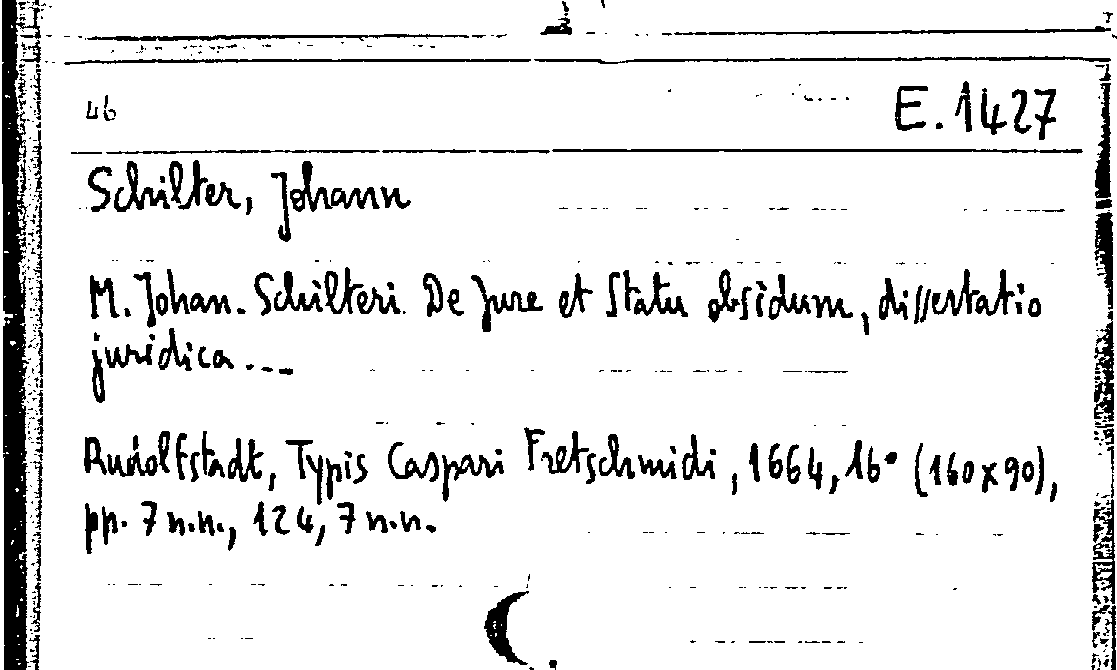 46
E.1427
Schilter, Johann
M. Johan. Schilteri De Jure et Statu obsidum, dissertatio
juridica...
Rudolfstadt, Typis Caspari Fretschmidi, 1664, 16° (160x90),
pp. 7 n.n., 124, 7 n.n.